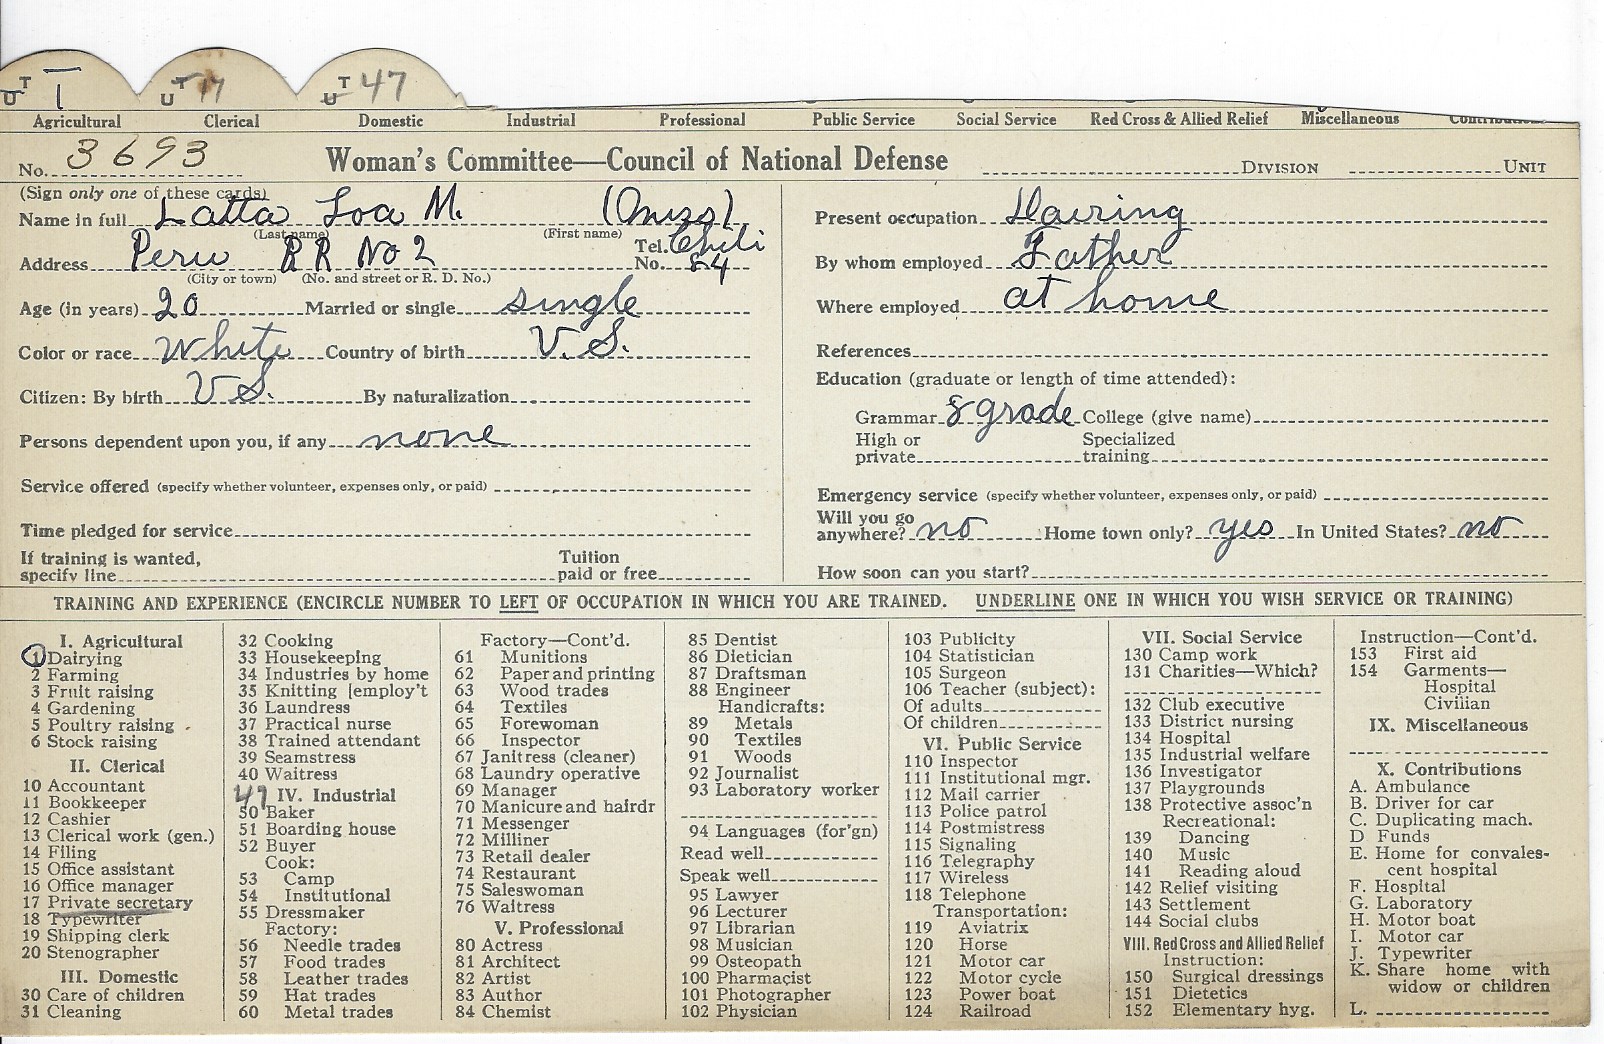 T U 1 T U 17 T U 47
Agricultural Clerical Domestic Industrial Professional Public Service Social Service Red Cross & Allied Relief Miscellaneous
No. 3693 Woman's Committee—Council of National Defense DIVISION UNIT
(Sign only one of these cards)
Name in full Latta Loa M. (Miss)
(Last name) (First name)
Address Peru RR No 2 Tel. No. Chili 84
(City or town) (No. and street or R. D. No.)
Age (in years) 20 Married or single single
Color or race White Country of birth U.S.
Citizen: By birth U S. By naturalization
Persons dependent upon you, if any none
Service offered (specify whether volunteer, expenses only, or paid)
Time pledged for service
If training is wanted, specify line Tuition paid or free
Present occupation Dairing
By whom employed Father
Where employed at home
References
Education (graduate or length of time attended):
Grammar 8 grade College (give name)
High or private Specialized training
Emergency service (specify whether volunteer, expenses only, or paid)
Will you go anywhere? no Home town only? yes In United States? no
How soon can you start?
TRAINING AND EXPERIENCE (ENCIRCLE NUMBER TO LEFT OF OCCUPATION IN WHICH YOU ARE TRAINED. UNDERLINE ONE IN WHICH YOU WISH SERVICE OR TRAINING)
I. Agricultural
1 Dairying
2 Farming
3 Fruit raising
4 Gardening
5 Poultry raising
6 Stock raising
II. Clerical
10 Accountant
11 Bookkeeper
12 Cashier
13 Clerical work (gen.)
14 Filing
15 Office assistant
16 Office manager
17 Private secretary
18 Typewriter
19 Shipping clerk
20 Stenographer
III. Domestic
30 Care of children
31 Cleaning
32 Cooking
33 Housekeeping
34 Industries by home
35 Knitting [employ't
36 Laundress
37 Practical nurse
38 Trained attendant
39 Seamstress
40 Waitress
47 IV. Industrial
50 Baker
51 Boarding house
52 Buyer
Cook:
53 Camp
54 Institutional
55 Dressmaker
Factory:
56 Needle trades
57 Food trades
58 Leather trades
59 Hat trades
60 Metal trades
Factory—Cont'd.
61 Munitions
62 Paper and printing
63 Wood trades
64 Textiles
65 Forewoman
66 Inspector
67 Janitress (cleaner)
68 Laundry operative
69 Manager
70 Manicure and hairdr
71 Messenger
72 Milliner
73 Retail dealer
74 Restaurant
75 Saleswoman
76 Waitress
V. Professional
80 Actress
81 Architect
82 Artist
83 Author
84 Chemist
85 Dentist
86 Dietician
87 Draftsman
88 Engineer
Handicrafts:
89 Metals
90 Textiles
91 Woods
92 Journalist
93 Laboratory worker
94 Languages (for'gn)
Read well
Speak well
95 Lawyer
96 Lecturer
97 Librarian
98 Musician
99 Osteopath
100 Pharmacist
101 Photographer
102 Physician
103 Publicity
104 Statistician
105 Surgeon
106 Teacher (subject):
Of adults
Of children
VI. Public Service
110 Inspector
111 Institutional mgr.
112 Mail carrier
113 Police patrol
114 Postmistress
115 Signaling
116 Telegraphy
117 Wireless
118 Telephone
Transportation:
119 Aviatrix
120 Horse
121 Motor car
122 Motor cycle
123 Power boat
124 Railroad
VII. Social Service
130 Camp work
131 Charities—Which?
132 Club executive
133 District nursing
134 Hospital
135 Industrial welfare
136 Investigator
137 Playgrounds
138 Protective assoc'n
Recreational:
139 Dancing
140 Music
141 Reading aloud
142 Relief visiting
143 Settlement
144 Social clubs
VIII. Red Cross and Allied Relief
Instruction:
150 Surgical dressings
151 Dietetics
152 Elementary hyg.
Instruction—Cont'd.
153 First aid
154 Garments—
Hospital
Civilian
IX. Miscellaneous
X. Contributions
A. Ambulance
B. Driver for car
C. Duplicating mach.
D Funds
E. Home for convales-
cent hospital
F. Hospital
G. Laboratory
H. Motor boat
I. Motor car
J. Typewriter
K. Share home with
widow or children
L.